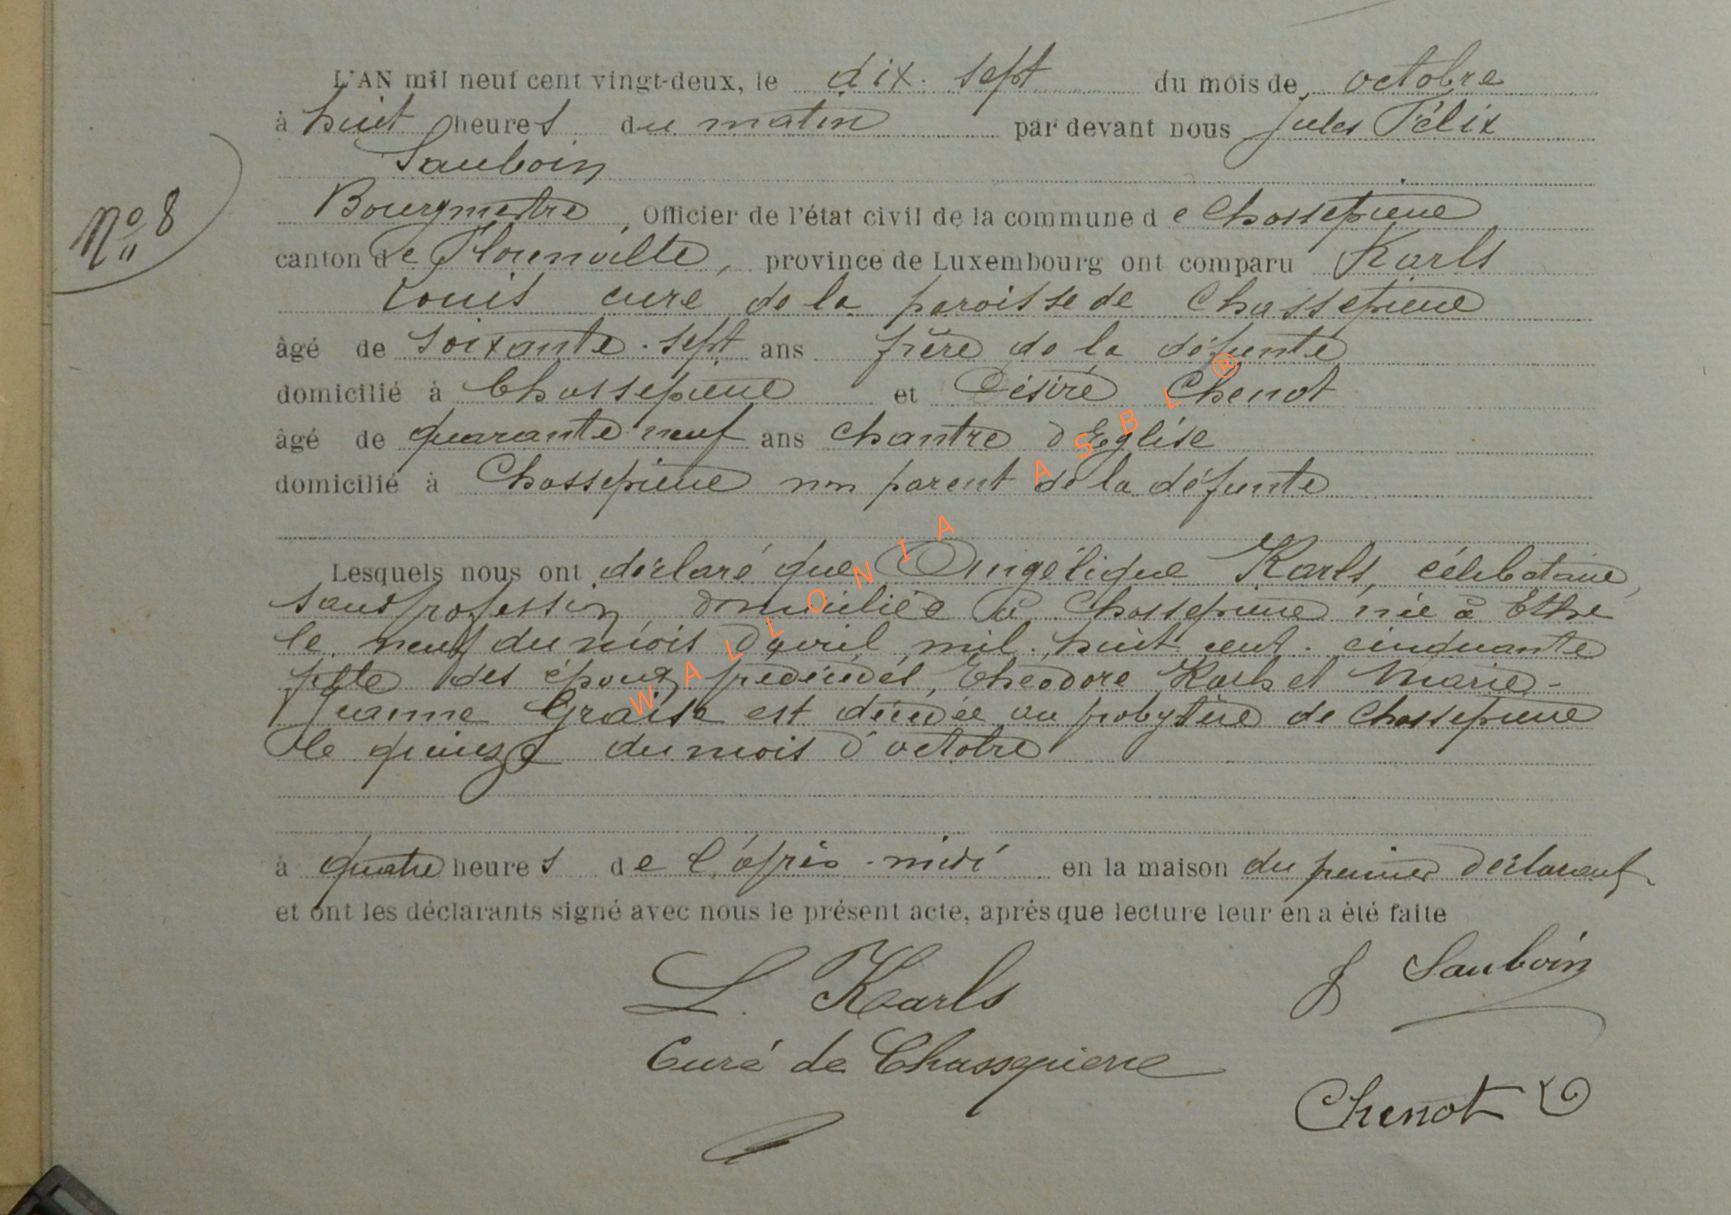 L'AN mil neuf cent vingt-deux, le dix-sept du mois de octobre
à huit heures du matin par devant nous Jules Félix
Sauboin
Bourgmestre, Officier de l'état civil de la commune de Chassepierre
N° 8
canton de Florenville, province de Luxembourg ont comparu Karls
Louis curé de la paroisse de Chassepierre
âgé de soixante-sept ans frère de la défunte
domicilié à Chassepierre et Désiré Chenot
âgé de quarante neuf ans chantre d'Eglise
domicilié à Chassepierre non parent de la défunte
Lesquels nous ont déclaré que Angélique Karls, célibataire,
sans profession domiciliée à Chassepierre née à Ethe
le neuf du mois d'avril mil huit cent cinquante
fille des époux prédécédés, Théodore Karls et Marie-
Jeanne Graise est décédée au presbytère de Chassepierre
le quinze du mois d'octobre
à quatre heures de l'après-midi en la maison du premier déclarant
et ont les déclarants signé avec nous le présent acte, après que lecture leur en a été faite
L. Karls
J Sauboin
Curé de Chassepierre
Chenot
WALLONIA ASBL ®